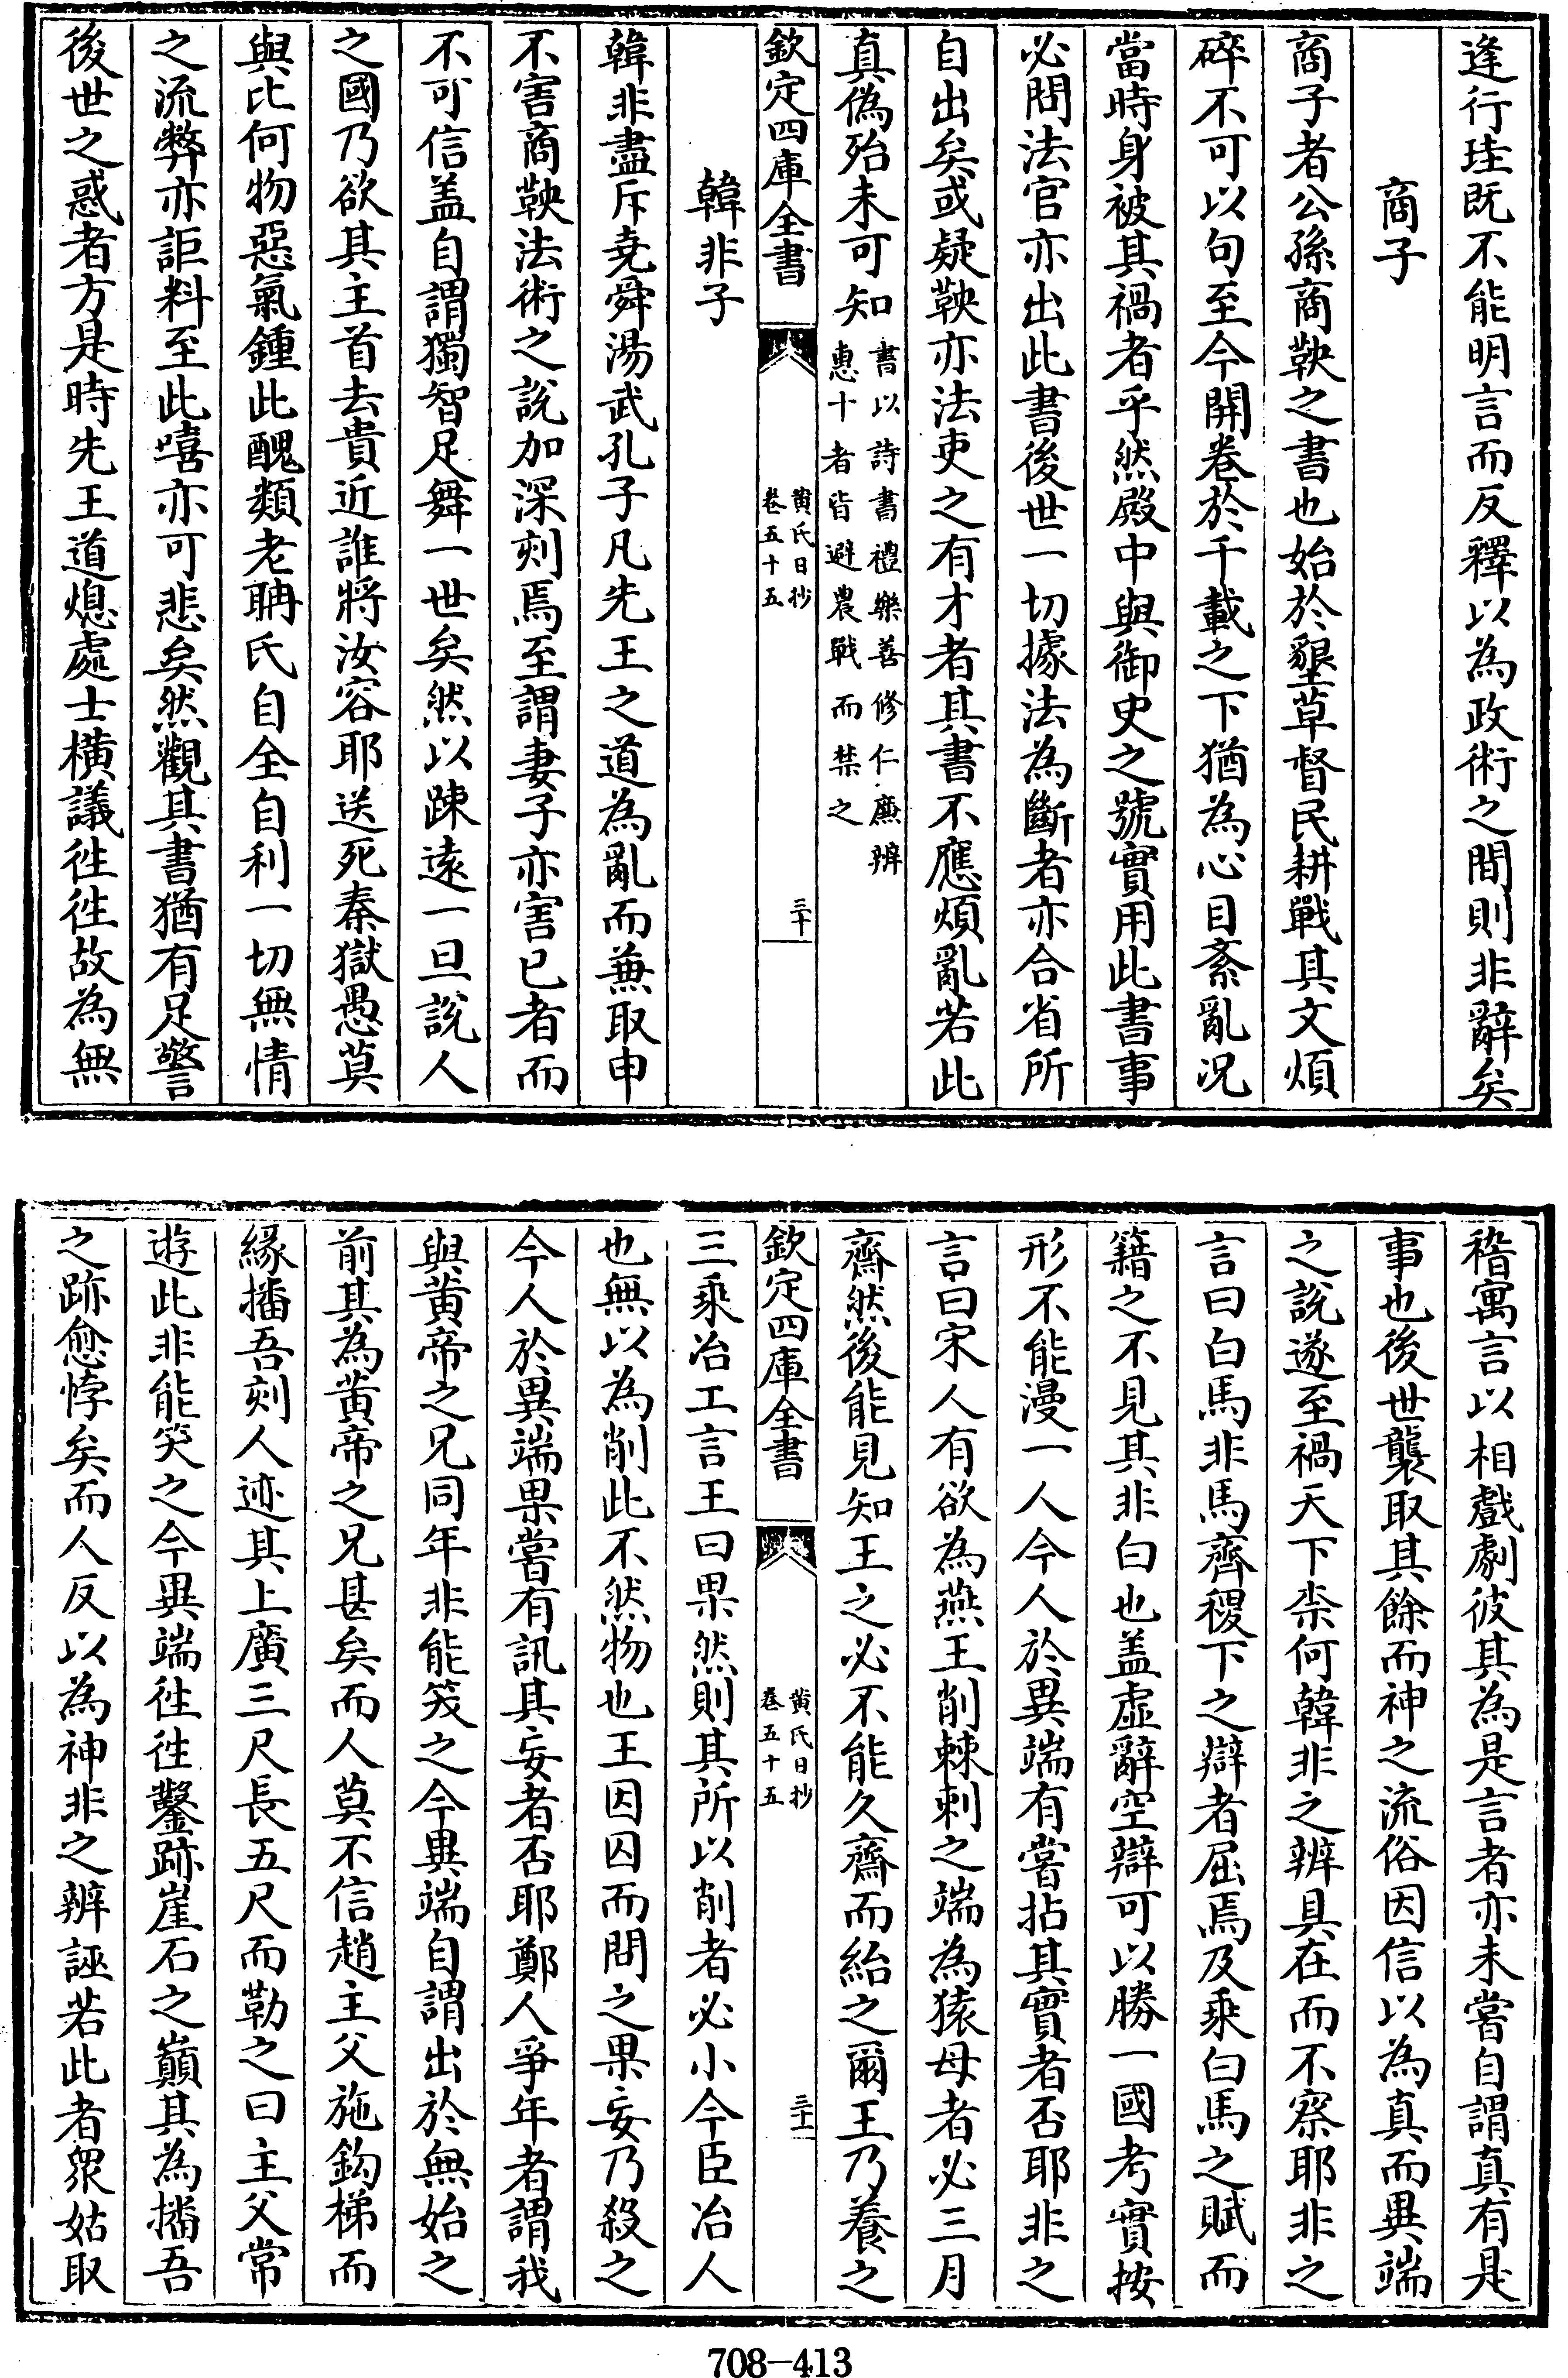 逢行珪既不能明言而反釋以為政術之間則非辭矣
商子
商子者公孫商鞅之書也始於墾草督民耕戰其文煩
碎不可以句至今開卷於千載之下猶為心目紊亂况
當時身被其禍者乎然殿中與御史之號實用此書事
必問法官亦出此書後世一切據法為斷者亦合省所
自出矣或疑鞅亦法吏之有才者其書不應煩亂若此
真偽殆未可知
書以詩書禮樂善修仁廉辨
惠十者皆避農戰而禁之
欽定四庫全書
黄氏日抄
卷五十五
三十
韓非子
韓非盡斥堯舜湯武孔子凡先王之道為亂而兼取申
不害商鞅法術之說加深刻焉至謂妻子亦害已者而
不可信盖自謂獨智足舞一世矣然以踈遠一旦說人
之國乃欲其主首去貴近誰將汝容耶送死秦獄愚莫
與比何物惡氣鍾此醜類老聃氏自全自利一切無情
之流弊亦詎料至此嘻亦可悲矣然觀其書猶有足警
後世之惑者方是時先王道熄處士横議徃徃故為無
稽寓言以相戲劇彼其為是言者亦未嘗自謂真有是
事也後世襲取其餘而神之流俗因信以為真而異端
之說遂至禍天下柰何韓非之辨具在而不察耶非之
言曰白馬非馬齊稷下之辯者屈焉及乘白馬之賦而
籍之不見其非白也盖虛辭空辯可以勝一國考實按
形不能漫一人今人於異端有嘗拈其實者否耶非之
言曰宋人有欲為燕王削棘刺之端為猿母者必三月
齋然後能見知王之必不能久齋而紿之爾王乃養之
欽定四庫全書
黄氏日抄
卷五十五
三十一
三乘冶工言王曰果然則其所以削者必小今臣冶人
也無以為削此不然物也王因囚而問之果妄乃殺之
今人於異端果嘗有訊其妄者否耶鄭人爭年者謂我
與黄帝之兄同年非能笑之今異端自謂出於無始之
前其為黄帝之兄甚矣而人莫不信趙主父施鈎梯而
緣播吾刻人迹其上廣三尺長五尺而勒之曰主父常
遊此非能笑之今異端徃徃鑿跡崖石之巔其為播吾
之跡愈悖矣而人反以為神非之辨誣若此者衆姑取
708-413